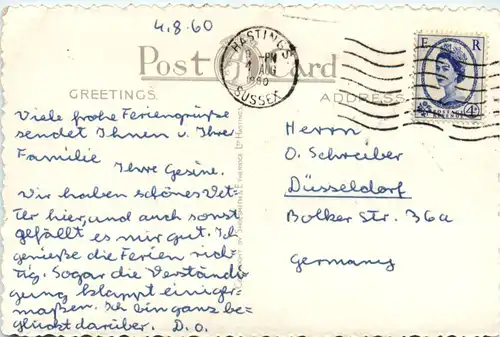 4.8.60
Post Card
HASTINGS
PM
AUG
1960
SUSSEX
E R
GREETINGS.
ADDRESS
Viele frohe Feriengrüße
sendet Ihnen u. Ihrer
Familie
Ihre Gesine.
Wir haben schönes Wet-
ter hier, und auch sonst
gefällt es mir gut. Ich
genieße die Ferien rich-
tig. Sogar die Verständi-
gung klappt einiger-
maßen. Ich bin ganz be-
glückt darüber. D. o.
Herrn
O. Schreiber
Düsseldorf
Bolker Str. 36a
Germany